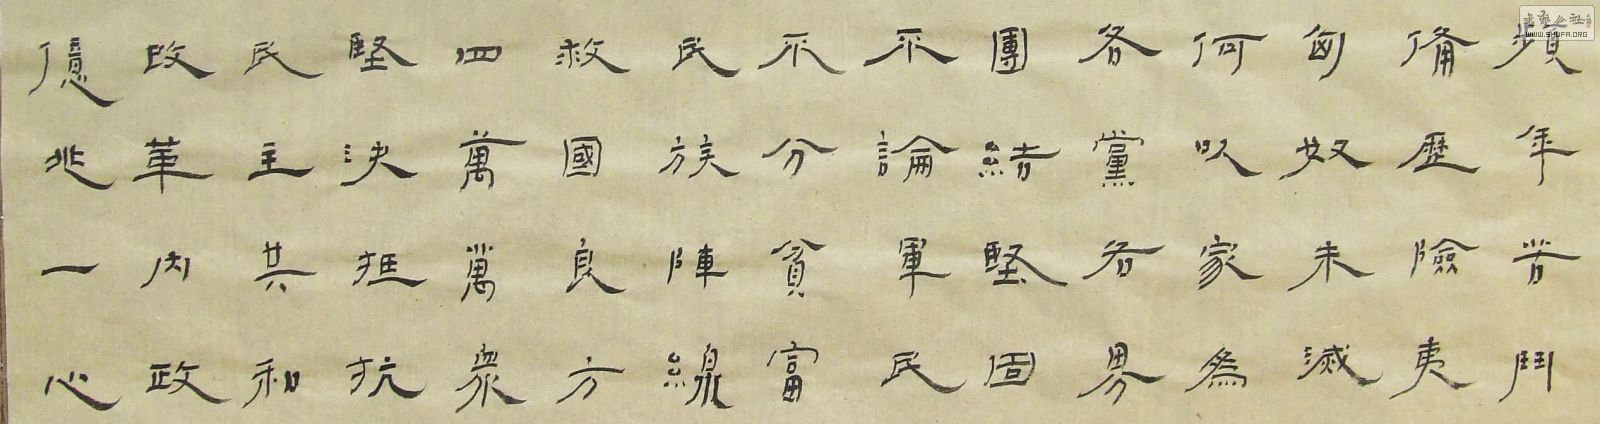 頻年苦鬥
備歷險夷
匈奴未滅
何以家為
各黨各界
團結堅固
不論軍民
不分貧富
民族陣線
救國良方
四萬萬衆
堅決抵抗
民主共和
改革內政
億兆一心
WWW.SHUFA.ORG